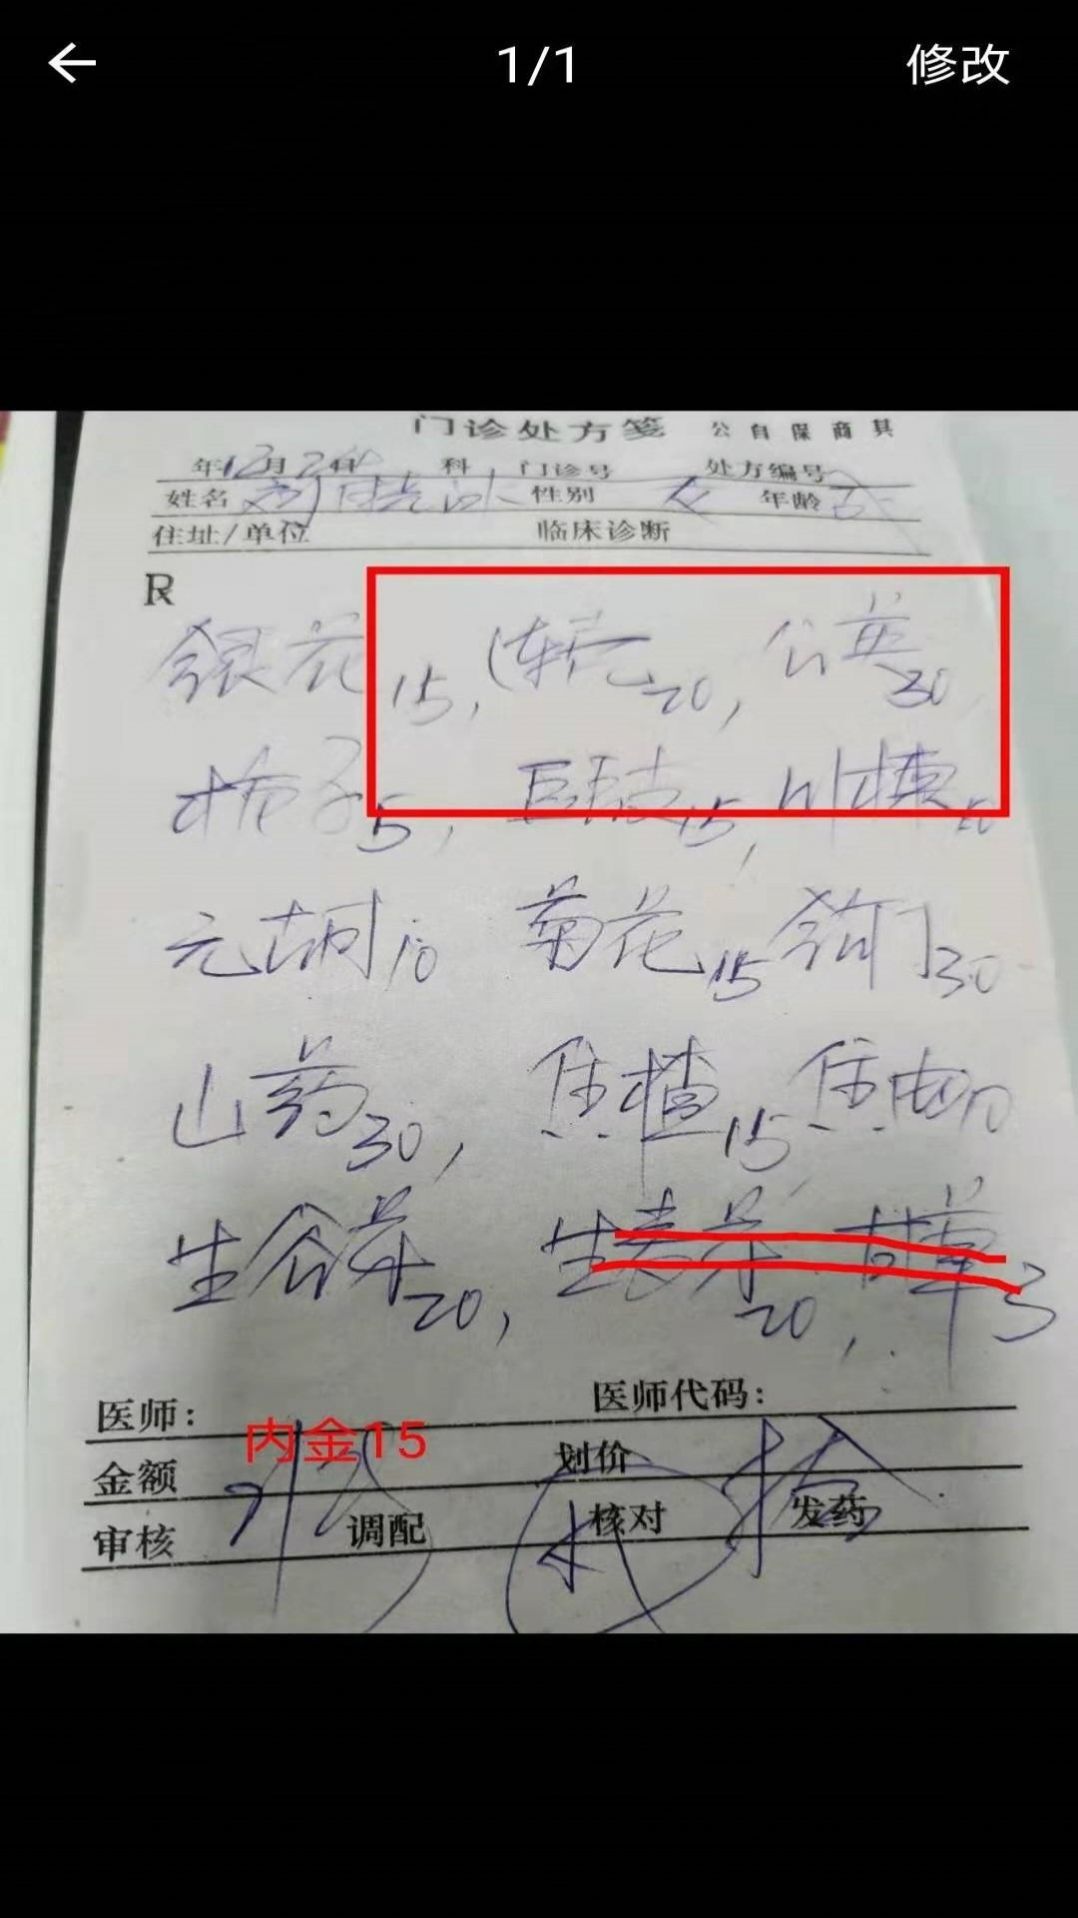 1/1 修改
门诊处方笺 公自保商其
年12月2日 科 门诊号 处方编号
姓名 刘 性别 女 年龄
住址/单位 临床诊断
R
银花15, 连壳20, 公英30,
栀子5, 15, 川楝10
元胡10 菊花15 钩丁30
山药30, 焦楂15 焦曲10
生谷芽20, 生麦芽20, 甘草3
医师: 医师代码:
内金15
金额 划价
审核 调配 核对 发药